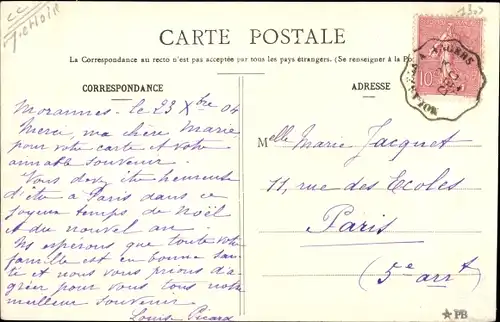 CARTE POSTALE
La Correspondance au recto n'est pas acceptée par tous les pays étrangers. (Se renseigner à la Po
CORRESPONDANCE
ADRESSE
Morannes. le 23 Xbre 04
Merci, ma chère Marie
pour votre carte et votre
aimable souvenir.
Vous devez être heureuse
d'être à Paris dans ce
joyeux temps de Noël
et du nouvel an.
Ns espérons que toute votre
famille est en bonne san-
té et nous vous prions d'a-
gréer pour vous tous notre
meilleur souvenir
Louis Picard
Melle Marie Jacquet
11, rue des Ecoles
Paris
(5e arrt)
10
ANGERS
PB